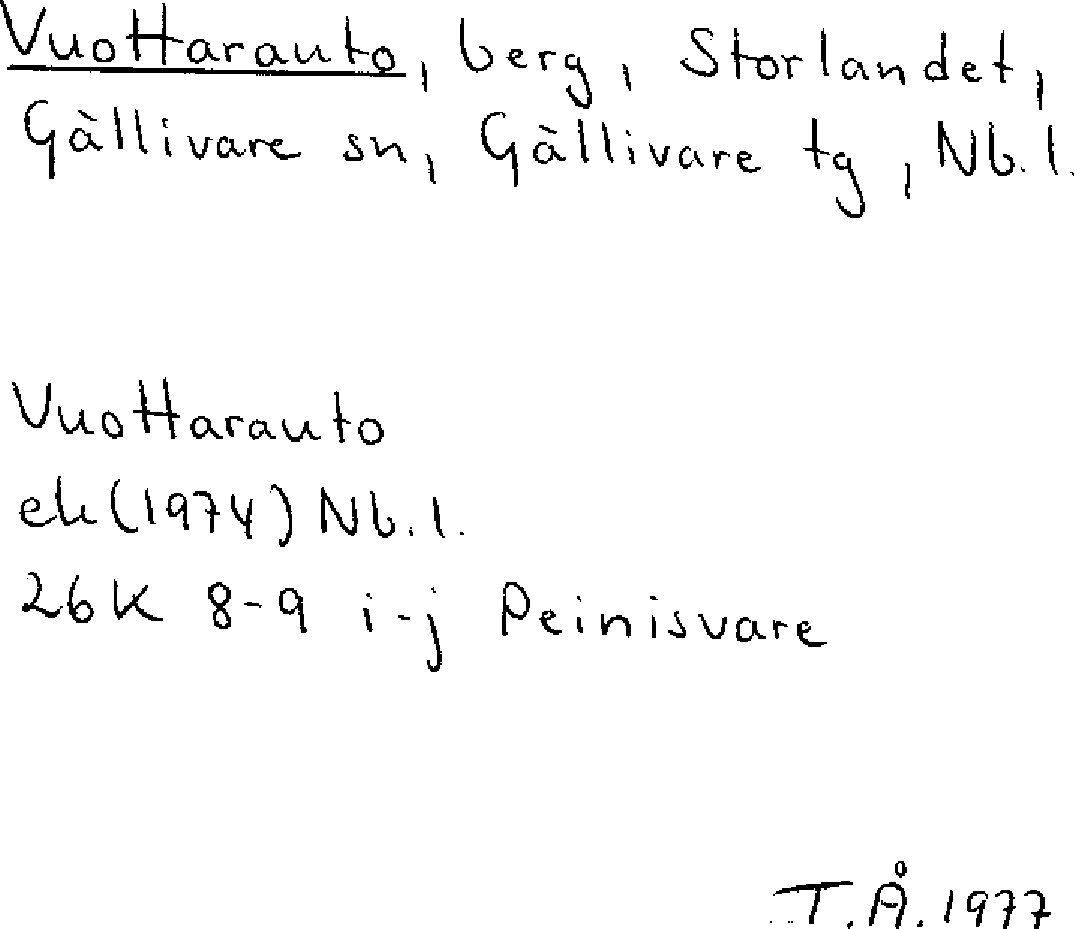 Vuottarauto, berg, Storlandet,
Gällivare sn, Gällivare tg, Nb. l.
Vuottarauto
ek (1974) Nb. l.
26K 8-9 i-j Peinisvare
T. Å. 1977